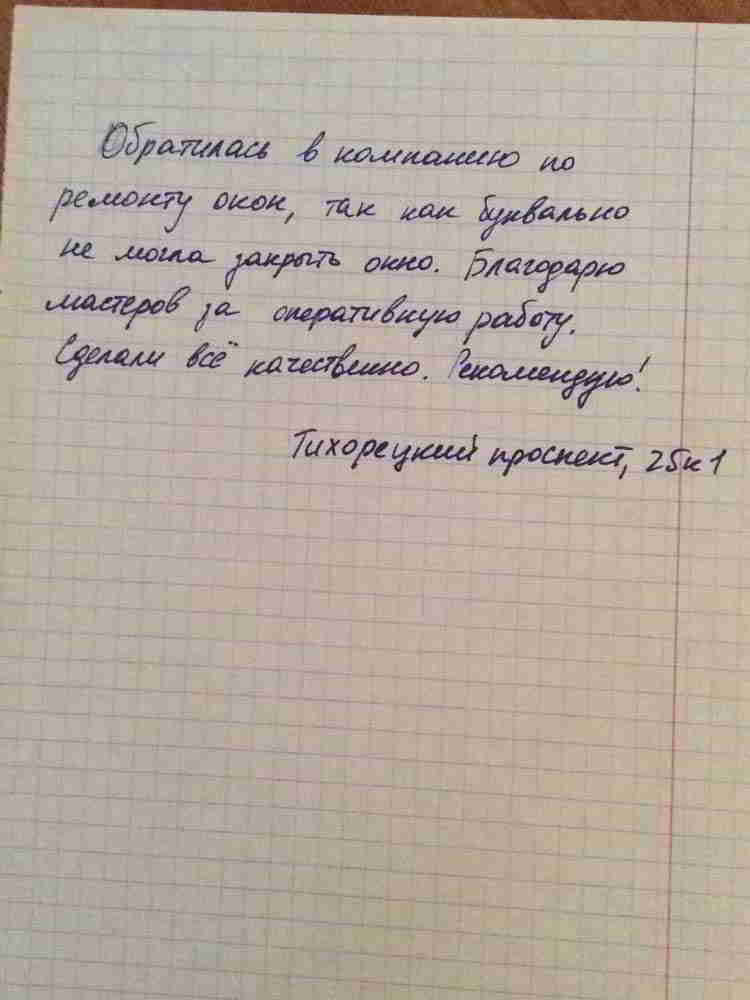 Обратилась в компанию по
ремонту окон, так как буквально
не могла закрыть окно. Благодарю
мастеров за оперативную работу.
Сделали всё качественно. Рекомендую!
Тихорецкий проспект, 25к1